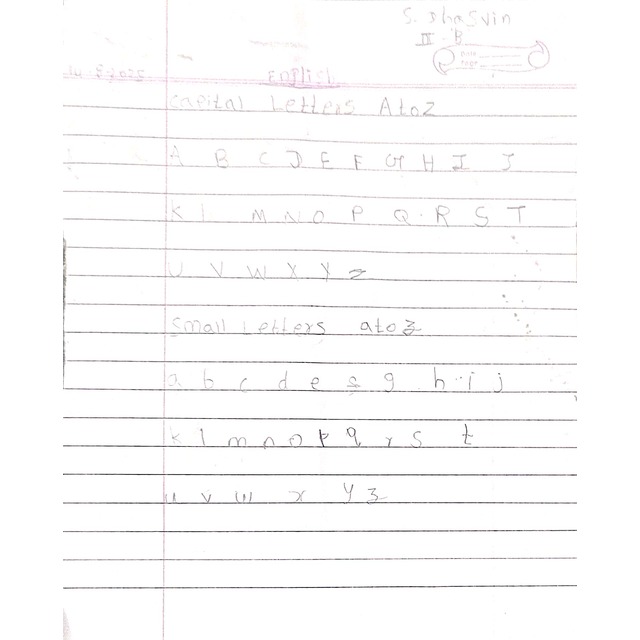 S. Dhasvin
III - B
DATE
PAGE
14-8-2025
English
Capital Letters A to Z
A B C D E F G H I J
K L M N O P Q. R S T
U V W X Y Z
Small Letters a to z
a b c d e s g h i j
k l m n o p q r s t
u v w x y z